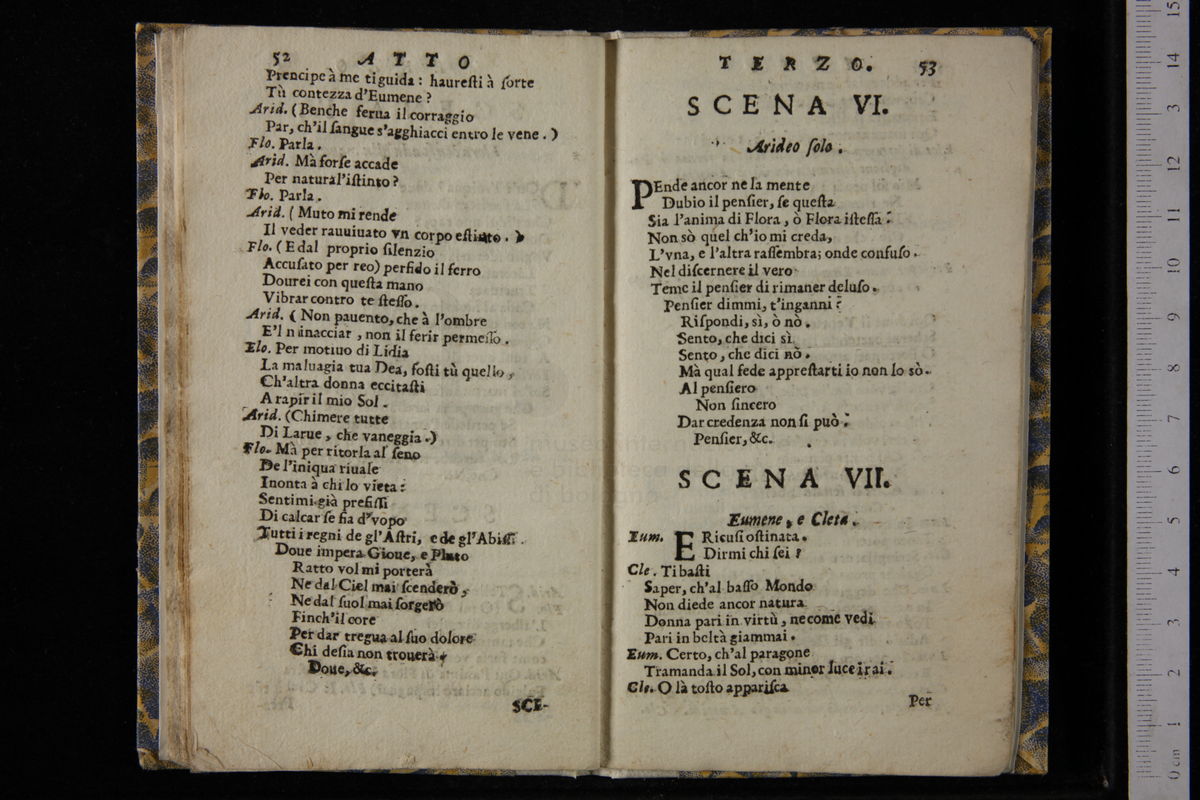 52 ATTO
Prencipe à me ti guida : haureſti à ſorte
Tù contezza d'Eumene ?
Arid. (Benche ferua il corraggio
Par, ch'il ſangue s'agghiacci entro le vene . )
Flo. Parla .
Arid. Mà forſe accade
Per natural'iſtinto ?
Flo. Parla .
Arid. ( Muto mi rende
Il veder rauuiuato vn corpo eſtinto . )
Flo. ( E dal proprio ſilenzio
Accuſato per reo) perfido il ferro
Dourei con queſta mano
Vibrar contro te ſteſſo .
Arid. ( Non pauento, che à l'ombre
E'l minacciar , non il ferir permeſſo .
Flo. Per motiuo di Lidia
La maluagia tua Dea, foſti tù quello ,
Ch'altra donna eccitaſti
A rapir il mio Sol .
Arid. (Chimere tutte
Di Larue , che vaneggia .)
Flo. Mà per ritorla al ſeno
De l'iniqua riuale
In onta à chi lo vieta :
Sentimi già prefiſſi
Di calcar ſe fia d'vopo
Tutti i regni de gl'Aſtri, e de gl'Abiſſi .
Doue impera Gioue, e Pluto
Ratto vol mi porterà
Ne dal Ciel mai ſcenderò ,
Ne dal ſuol mai ſorgerò
Finch'il core
Per dar tregua al ſuo dolore
Chi deſia non trouerà .
Doue, &c.
SCE-
TERZO. 53
SCENA VI.
Arideo ſolo .
PEnde ancor ne la mente
Dubio il penſier, ſe queſta
Sia l'anima di Flora , ò Flora iſteſſa :
Non sò quel ch'io mi creda,
L'vna, e l'altra raſſembra; onde confuſo .
Nel diſcernere il vero
Teme il penſier di rimaner deluſo .
Penſier dimmi, t'inganni ?
Riſpondi, sì, ò nò .
Sento, che dici sì
Sento , che dici nò .
Mà qual fede appreſtarti io non lo sò .
Al penſiero
Non ſincero
Dar credenza non ſi può :
Penſier, &c.
SCENA VII.
Eumene , e Cleta .
Eum. E Ricuſi oſtinata .
Dirmi chi ſei ?
Cle . Ti baſti
Saper, ch'al baſſo Mondo
Non diede ancor natura
Donna pari in virtù , ne come vedi
Pari in beltà giammai .
Eum. Certo, ch'al paragone
Tramanda il Sol, con minor luce i rai .
Cle. O là toſto appariſca
Per